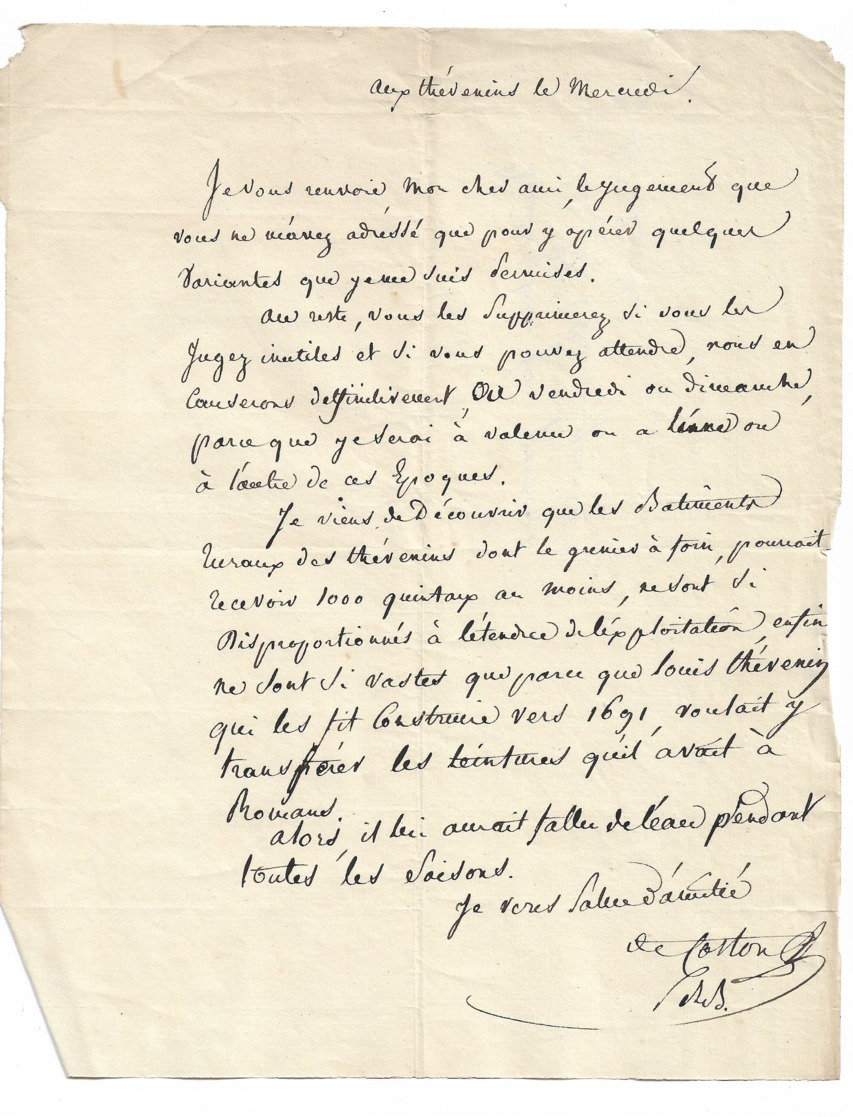 aux thévenins le Mercredi.
Je vous renvoie mon cher ami, le jugement que
vous ne m'avez adréssé que pour y opérer quelques
variantes que je me suis permises.
au reste, vous les supprimerez si vous les
Jugez inutiles et si vous pouvez attendre, nous en
Causerons deffinitivement, ou vendredi ou dimanche,
parce que je serai à valence ou a l'une ou
à l'autre de ces Epoques.
Je viens de Découvrir que les Batiments
ruraux des thévenins dont le grenier à foin, pourrait
recevoir 1000 quintaux au moins, ne sont si
Disproportionnés à l'étendue de l'éxploitation, enfin
ne sont si vastes que parce que louis thévenin
qui les fit Construire vers 1691, voulait y
transférer les teintures qu'il avait à
Romans.
alors, il lui aurait fallu de l'eau pendant
toutes les saisons.
Je vous salue D'amitié
de Coston